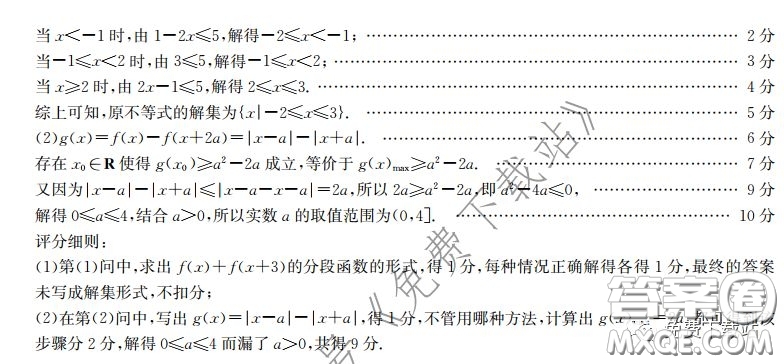 当x<-1时,由1-2x≤5,解得-2≤x<-1; 2分
当-1≤x<2时,由3≤5,解得-1≤x<2; 3分
当x≥2时,由2x-1≤5,解得2≤x≤3. 4分
综上可知,原不等式的解集为{x|-2≤x≤3}. 5分
(2)g(x)=f(x)-f(x+2a)=|x-a|-|x+a|. 6分
存在x₀∈R使得g(x₀)≥a²-2a成立,等价于g(x)max≥a²-2a. 7分
又因为|x-a|-|x+a|≤|x-a-x-a|=2a,所以2a≥a²-2a,即a²-4a≤0, 9分
解得0≤a≤4,结合a>0,所以实数a的取值范围为(0,4]. 10分
评分细则:
(1)第(1)问中,求出f(x)+f(x+3)的分段函数的形式,得1分,每种情况正确解得各得1分,最终的答案
未写成解集形式,不扣分;
(2)在第(2)问中,写出g(x)=|x-a|-|x+a|,得1分,不管用哪种方法,计算出g(x)
步骤分2分,解得0≤a≤4而漏了a>0,共得9分.
《免费下载站》
答案圈
MXQE.COM